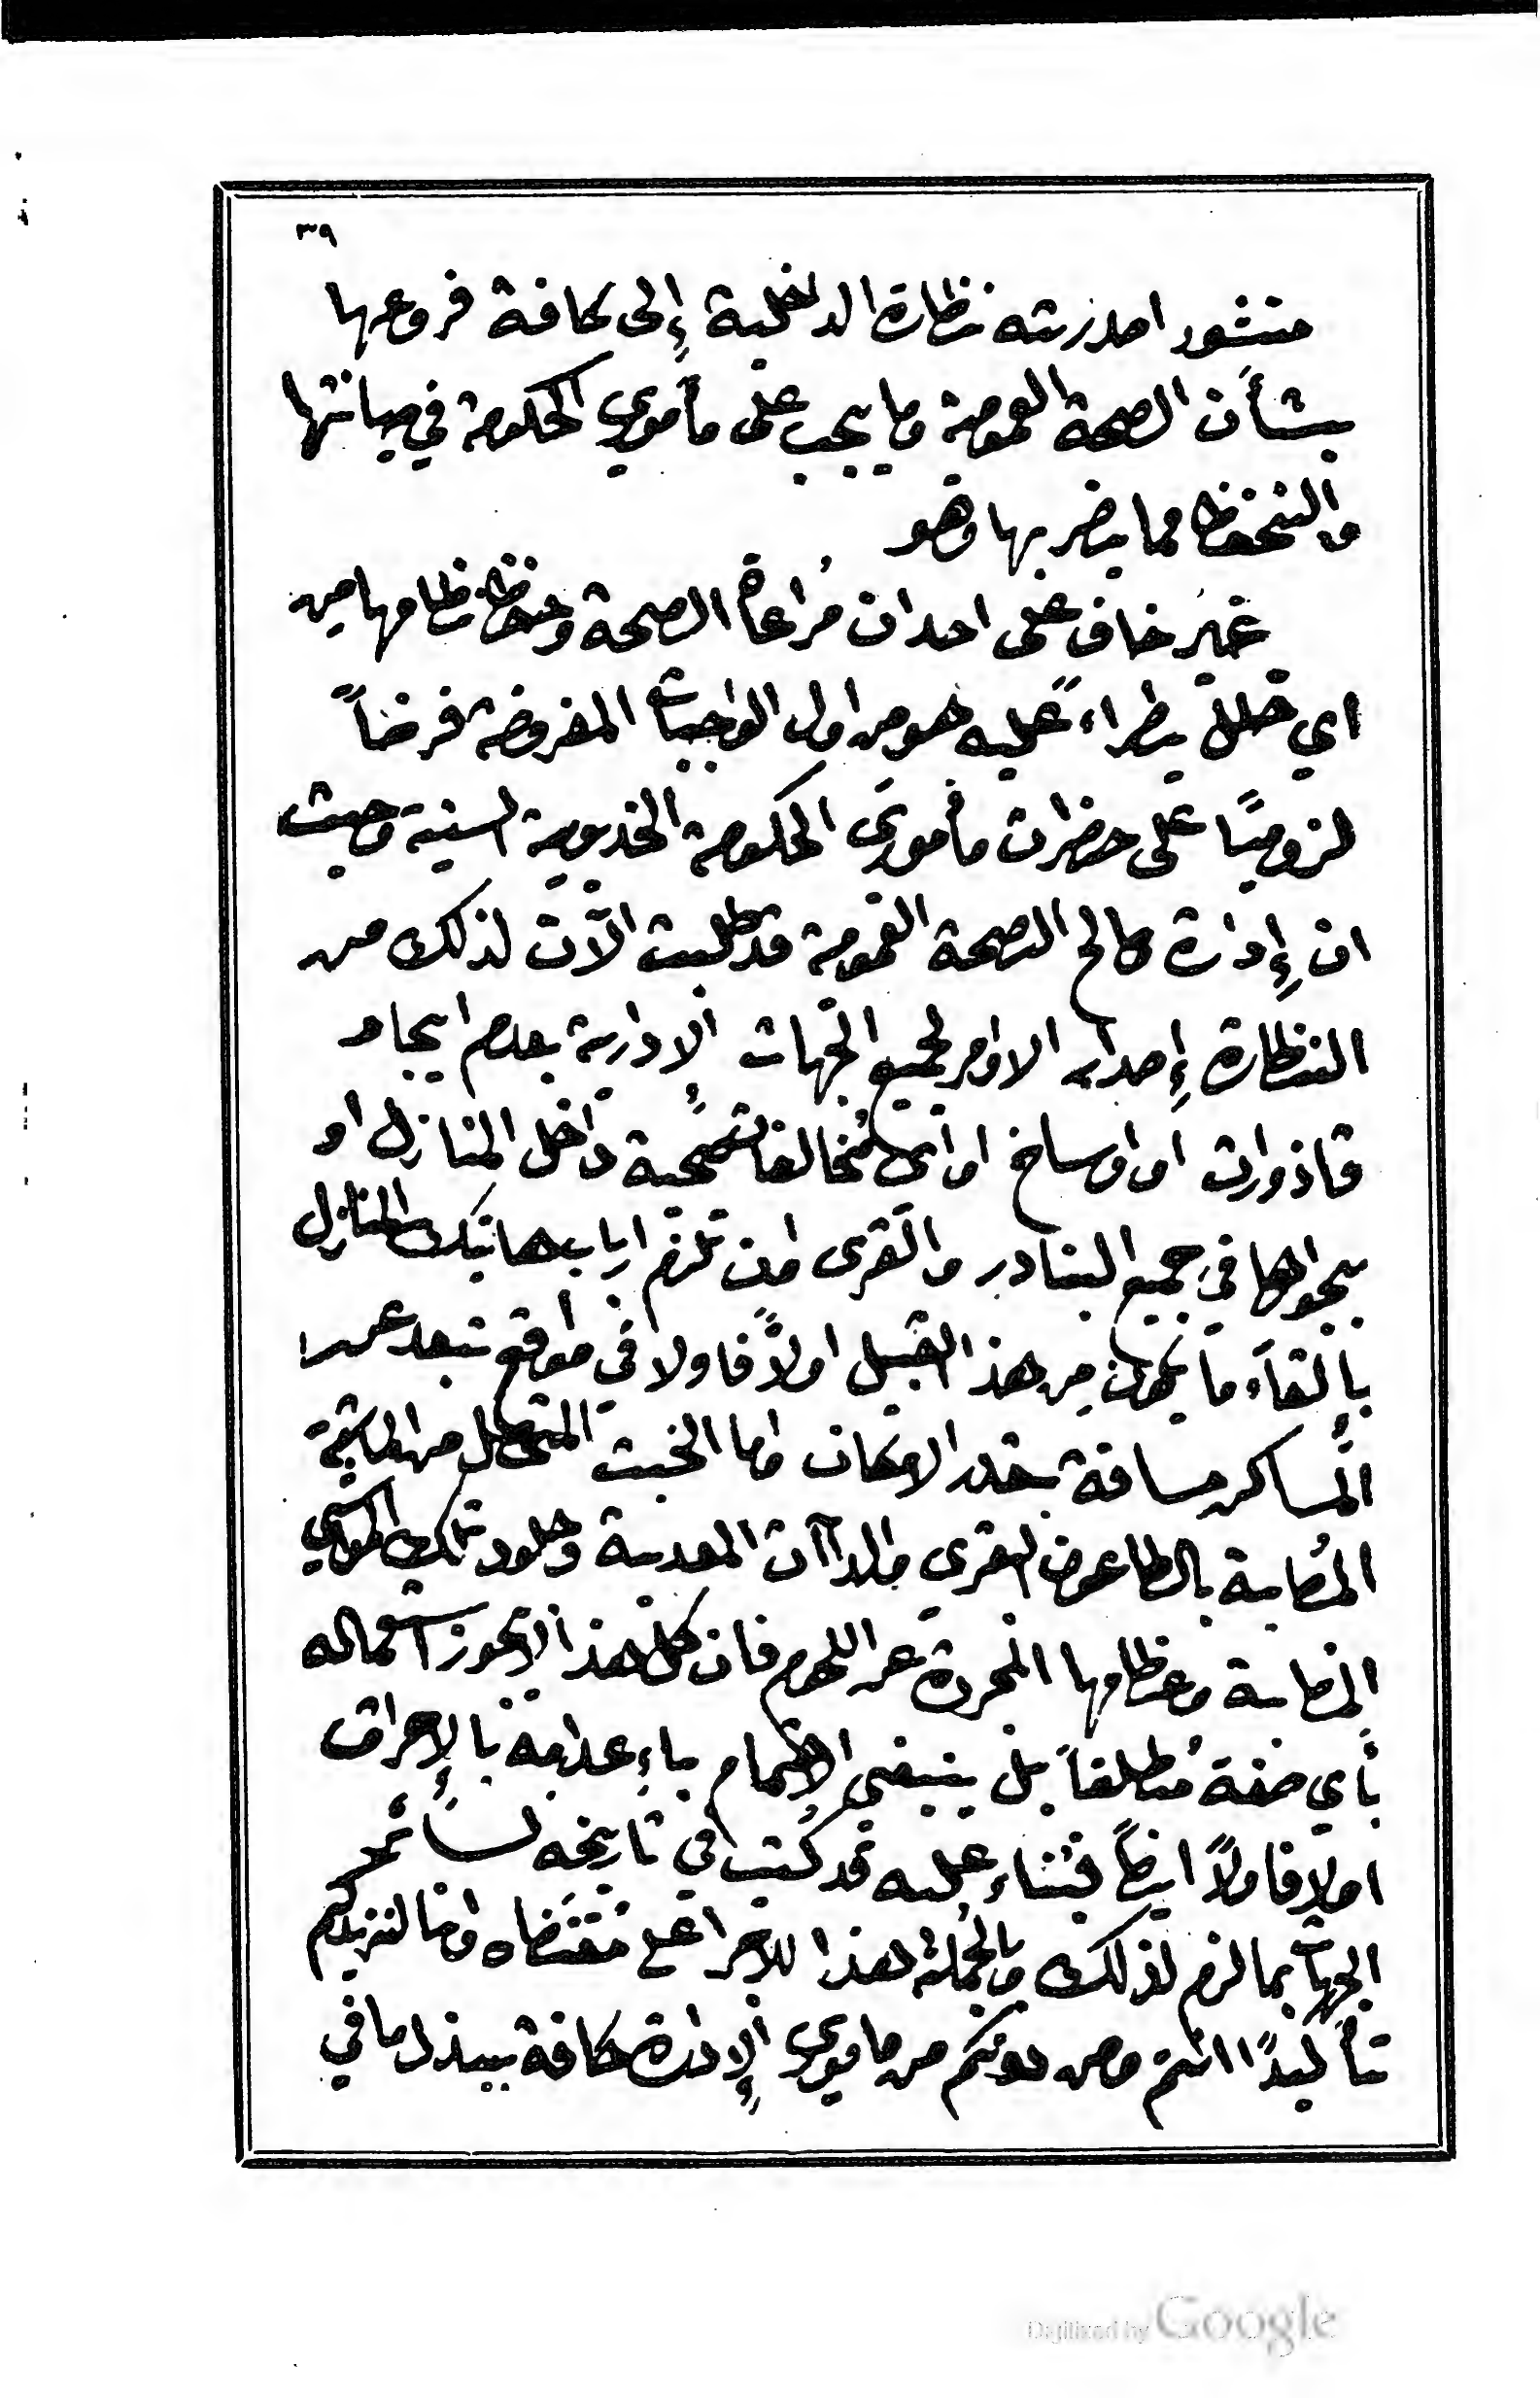 ٣٩
منشور اصدرته نظارة الداخلية إلى كافة فروعها
بشأن الصحة العمومية وما يجب على مأموري الحكومة في صيانتها
والتحفظ مما يضر بها وهو
غير خاف على احد ان مراعاة الصحة وحفظ نظامها من
اي خلل يطراء عليه هو من اول الواجبات المفروضة فرضاً
لزوميًا على حضرات مأموري الحكومة الخديوية السنية وحيث
ان إدارة مصالح الصحة العمومية قد طلبت الآن لذلك من
النظارة إصدار الاوامر لجميع الجهات الإدارية بعدم ايجاد
قاذورات او اوساخ او أي مخالفات صحية داخل المنازل او
بجوارها في جميع البنادر والقرى وان تلزم ارباب هاتيك المنازل
بإلقاء ما يكون من هذا القبيل اولاً فاولا في مواقع تبعد عن
المساكن مسافة بقدر الامكان واما الخبث المتحصل من الماشية
المُصابة بالطاعون البقري والداآت المعدية وجلود تلك المواشي
المصابة وعظامها المجردة عن اللحوم فان كل هذا لا يجوز استعماله
بأي صفة مُطلقاً بل ينبغي الاهتمام باءِعدامه بالإحراق
اولا فاولاً ايضاً فبناء عليه قد كُتب في تاريخه لسائر
الجهات بما لزم لذلك وبالجملة هذا للاجرا على مقتضاه واننا لنزيدكم
تأكيدًا انتم ومن دونكم من ماموري الإدارة كافة ببذل ما في
Digitized by Google